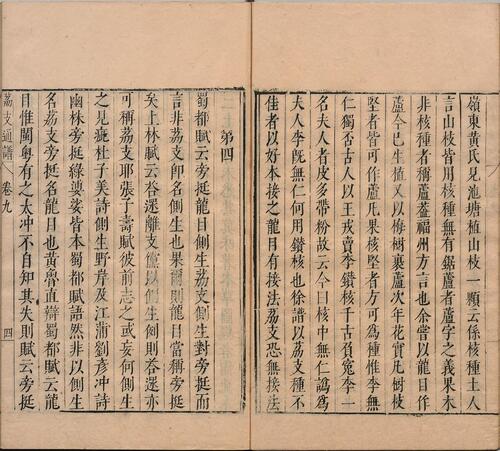 嶺東黃氏見池塘植山枝一顆云係核種土人
言山枝皆用核種無有鋸蘆者蘆字之義果木
非核種者稱蘆蓋福州方言也余嘗以龍目作
蘆今巳生植又以梅樹裹蘆次年花實凡樹枝
堅者皆可作蘆凡果核堅者方可為種惟李無
仁獨否古人以王戎賣李鑽核千古負冤李一
名夫人者皮多帶粉故云今曰核中無仁譌為
夫人李旣無仁何用鑽核也徐譜以荔支種不
佳者以好本接之龍目有接法荔支恐無接法
第四
蜀都賦云旁挺龍目側生荔支側生對旁挺而
言非荔支即名側生也果爾則龍目當稱旁挺
矣上林賦云荅遝離支儻以側生例則荅遝亦
可稱荔支耶張子壽賦彼前志之或妄何側生
之見疵杜子美詩側生野岸及江蒲劉彥冲詩
幽林旁挺綠婆娑皆本蜀都賦語然非以側生
名荔支旁挺名龍目也黃魯直辯蜀都賦云龍
目惟閩粵有之太冲不自知其失則賦云旁挺
荔支通譜 卷九 四